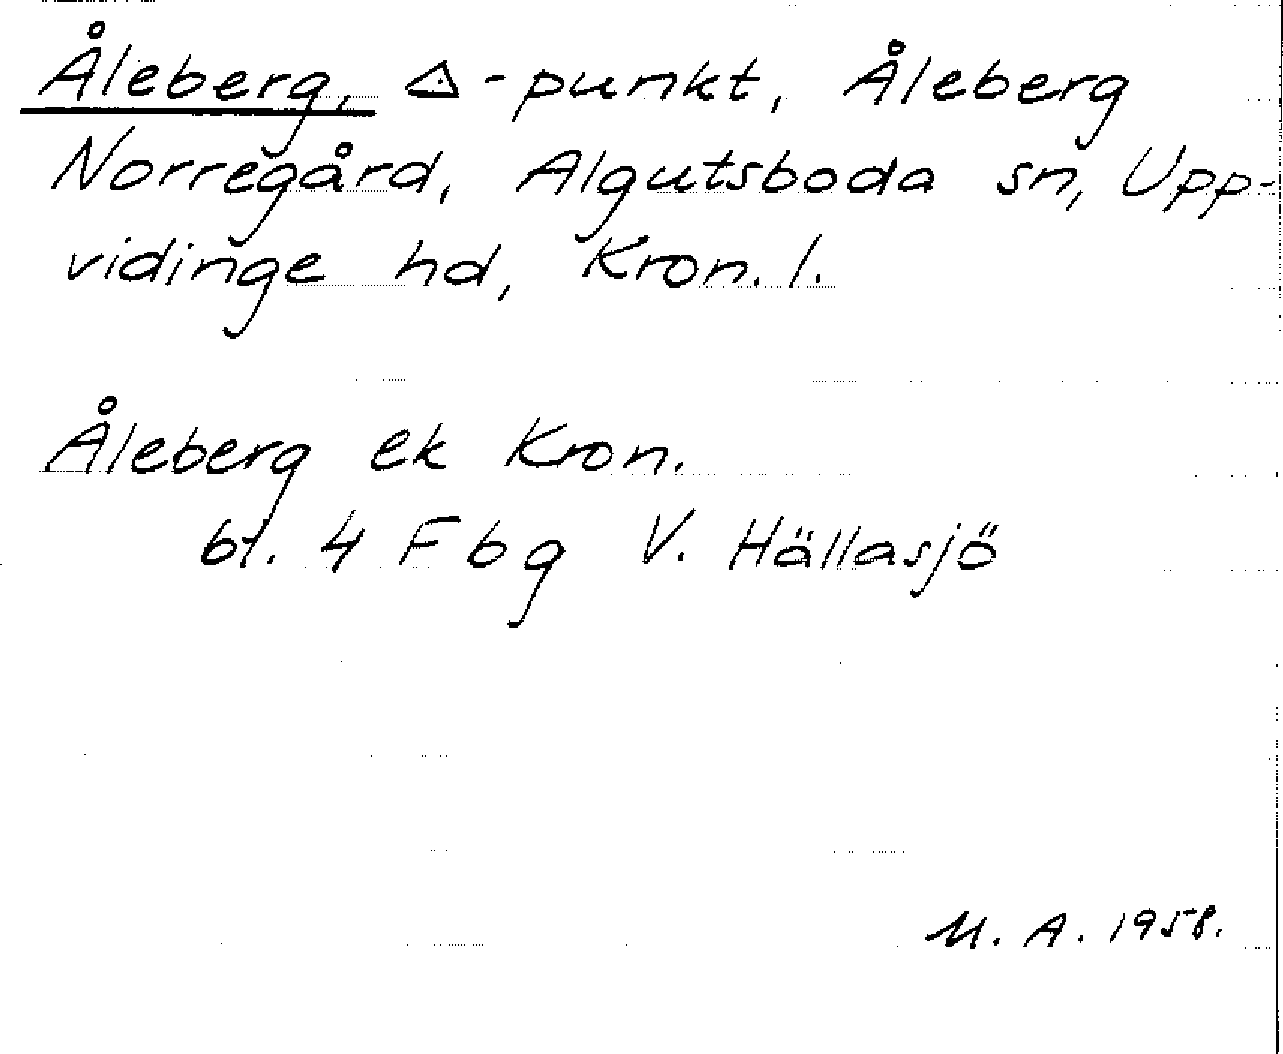 Åleberg, △-punkt, Åleberg
Norregård, Algutsboda sn, Upp-
vidinge hd, Kron. l.
Åleberg ek Kron.
bl. 4 F bg V. Hällasjö
M. A. 1958.